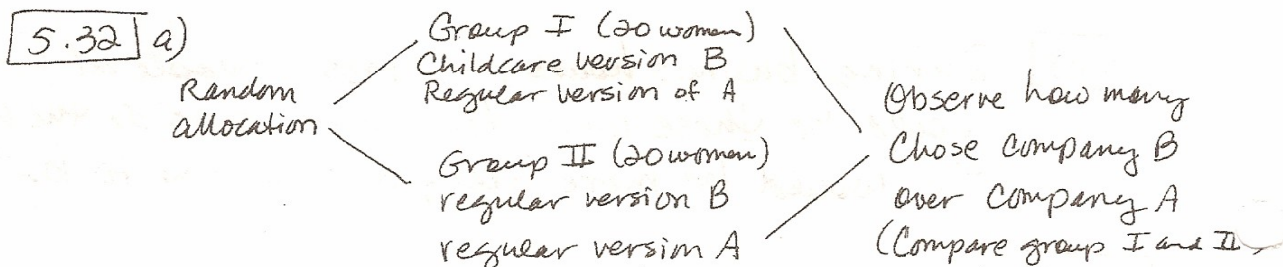 5.32 a)
Random
allocation
Group I (20 women)
Childcare version B
Regular version of A
Group II (20 women)
regular version B
regular version A
Observe how many
Chose Company B
over Company A
(Compare group I and II)